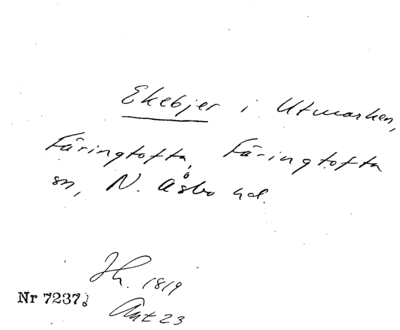 Ekebjer i Utmarken,
Färingtofta, Färingtofta
sn, N. Åsbo hd.
Jh. 1819
Akt 23
Nr 7237.